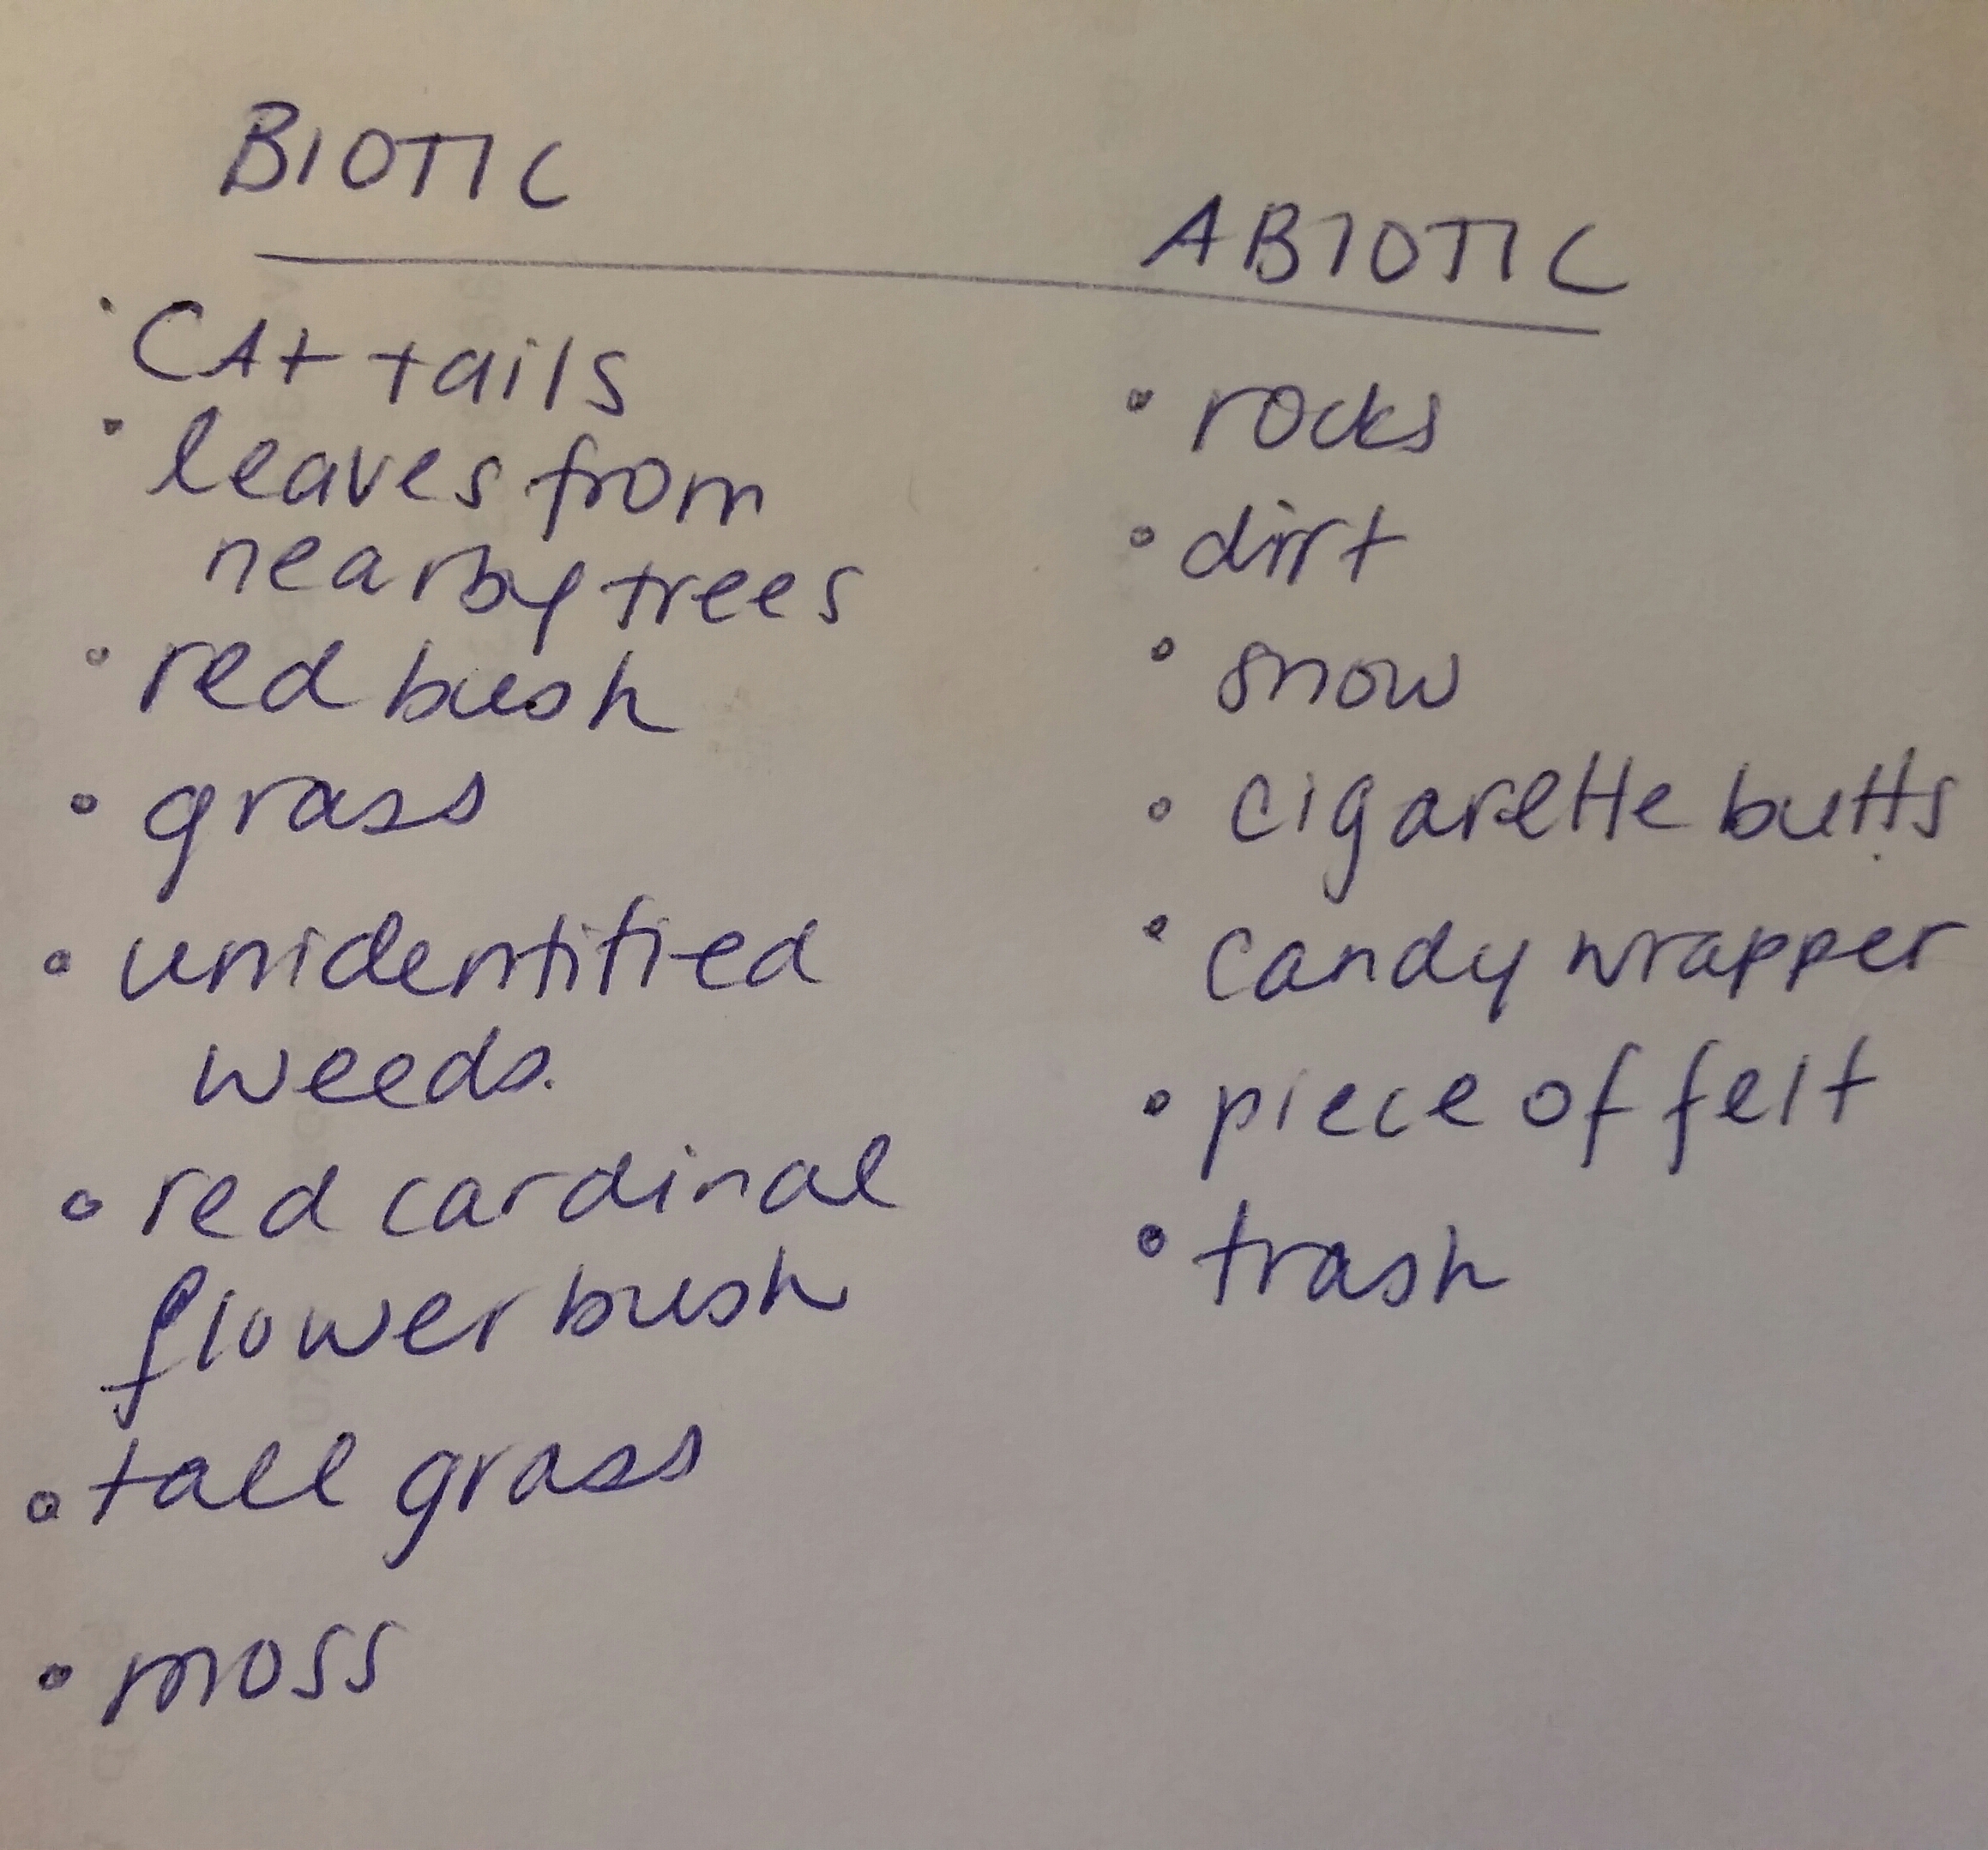 BIOTIC
• CAt tails
• leaves from
nearby trees
• red bush
• grass
• unidentified
weeds.
• red cardinal
flower bush
• tall grass
• moss
ABIOTIC
• rocks
• dirt
• snow
• cigarette butts
• candy wrapper
• piece of felt
• trash